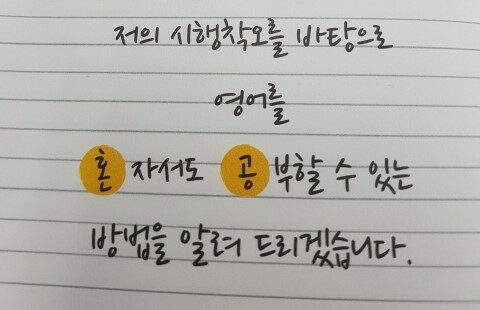 저의 시행착오를 바탕으로
영어를
혼자서도 공부할 수 있는
방법을 알려 드리겠습니다.